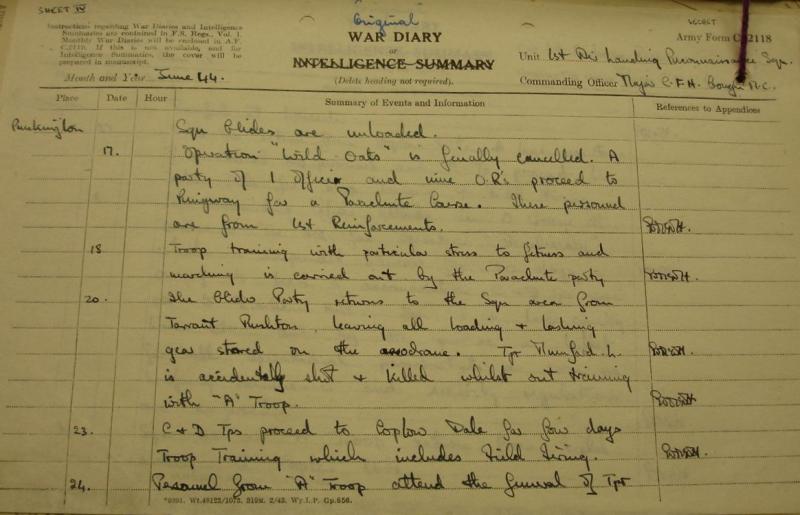 SHEET IV
Original
SECRET
Instructions regarding War Diaries and Intelligence
Summaries are contained in F.S. Regs., Vol. I.
Monthly War Diaries will be enclosed in A.F.
C.2119. If this is not available, and for
Intelligence Summaries, the cover will be
prepared in manuscript.
WAR DIARY
or
INTELLIGENCE SUMMARY
(Delete heading not required).
Army Form C.2118
Unit 1st Air Landing Reconnaissance Sqn.
Commanding Officer Major C.F.H. Gough M.C.
Month and Year June 44.
Place Date Hour Summary of Events and Information References to Appendices
Ruskington Sqn Glides are unloaded.
17. Operation "Wild Oats" is finally cancelled. A
party of 1 Officer and nine O.R's proceed to
Ringway for a Parachute Course. These personnel
are from 1st Reinforcements.
18 Troop training with particular stress to fitness and
marching is carried out by the Parachute party
20. The Glider Party returns to the Sqn area from
Tarrant Rushton, leaving all loading & lashing
gear stored on the aerodrome. Tpr Mumford. L.
is accidentally shot & killed whilst out training
with "A" Troop.
23. C & D Tps proceed to Coplow Dale for four days
Troop Training which includes Field Firing.
24. Personnel from "A" Troop attend the funeral of Tpr